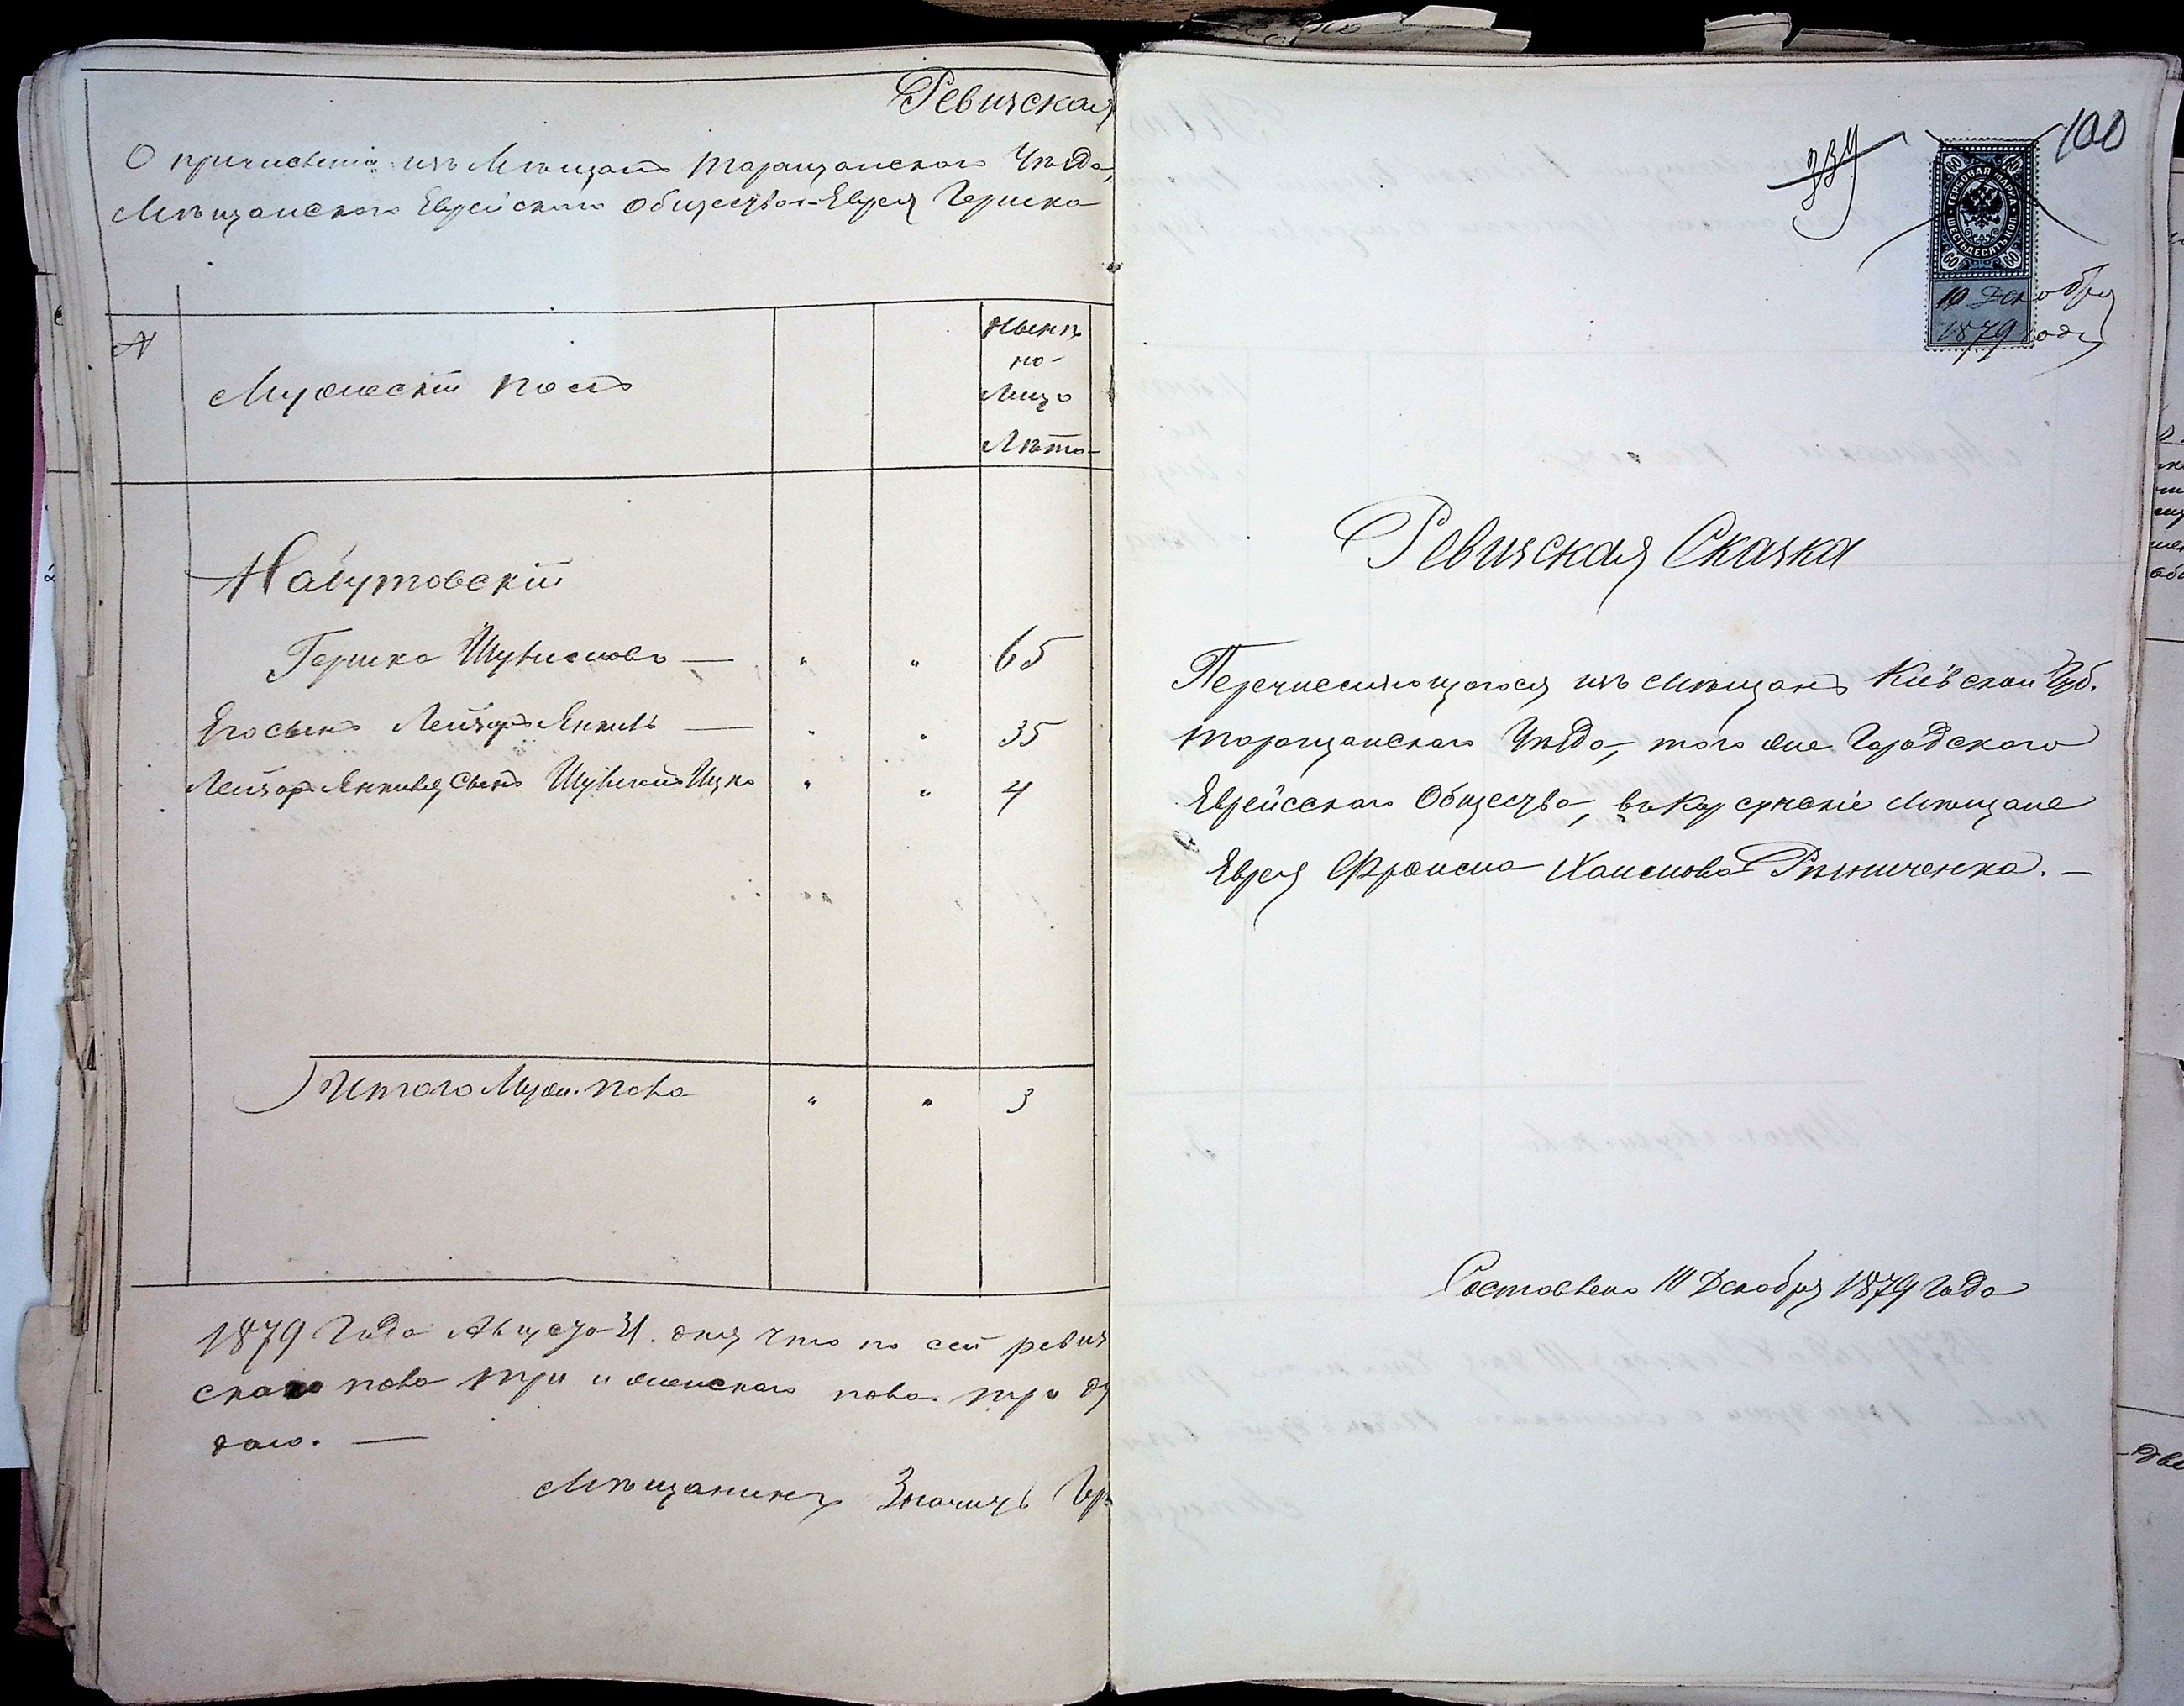 Ревизская
О причисленіи изъ Мѣщанъ Таращанскаго Уѣзда,
Мѣщанскаго Еврейскаго Общества Еврея Гершка
№
Мужескій полъ
Нынѣ
на
Лицо
Лѣта
Набутовскій
Гершко Шулимовъ — " " 65
Его сынъ Лейзоръ Янкель — " " 35
Лейзора Янкеля сынъ Шулимъ Ицко " " 4
Итого Муж. пола " " 3
1879 Года Августа 31. дня что по сей ревиз
скаго пола три и женскаго пола. три ду
дано. —
Мѣщанинъ Значитъ Гер
100
ГЕРБОВАЯ МАРКА
ШЕСТЬДЕСЯТЪ КОП.
60 60
60 60
10 Декабря
1879 года
Ревизская Сказка
Перечисляющагося изъ мѣщанъ Кіевской Губ.
Таращанскаго Уѣзда, того же Городского
Еврейскаго Общества, въ Корсунскіе Мѣщане
Еврея Фроима Хаимова Рѣзниченка. —
Составлено 10 Декабря 1879 Года